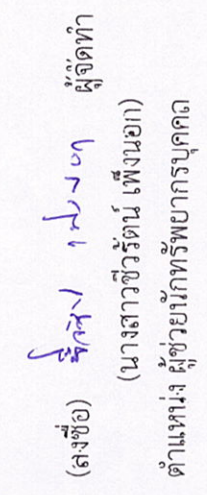 (ลงชื่อ) ผู้จัดทำ
(นางสาวชีวรัตน์ เพิงนอก)
ตำแหน่ง ผู้ช่วยนักทรัพยากรบุคคล